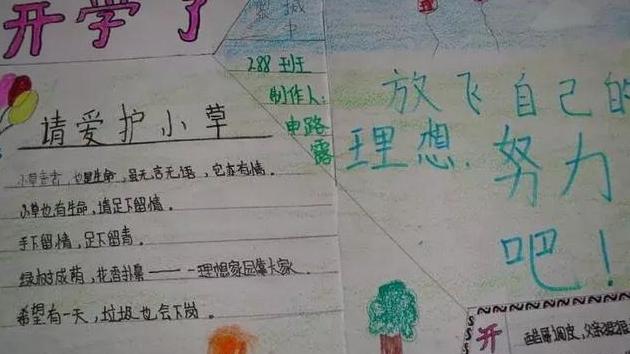 开学了
城
中
288班
制作人:
申路
露
请爱护小草
也是生命,虽无言无语,它亦有情。
小草也有生命,请足下留情。
手下留情,足下留青。
绿树成荫,花香扑鼻——理想家园靠大家。
希望有一天,垃圾也会下岗。
放飞自己的
理想.努力
吧!
开
调皮,